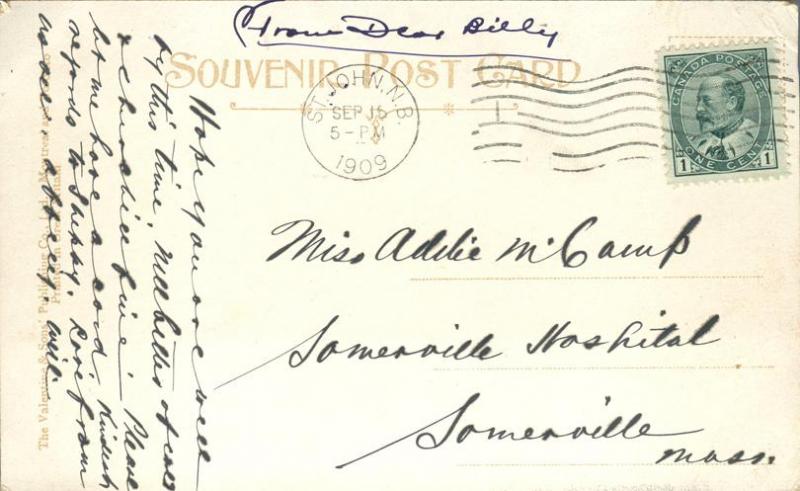 From Dear Billy
SOUVENIR POST CARD
ST. JOHN, N.B.
SEP 15
5 - PM
1909
CANADA POSTAGE
1 ONE CENT 1
Miss Addie McCamp
Somerville Hospital
Somerville
Mass.
Hope you are well
by this time.
fine. Please
let me have a card. Kindest
regards to Love from
The Valentine & Sons' Publishing Co., Ltd., Montreal
Printed in Great Britain